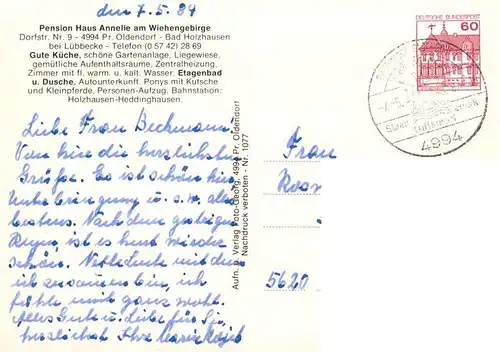 den 7.5.89
Pension Haus Annelie am Wiehengebirge
Dorfstr. Nr. 9 - 4994 Pr. Oldendorf - Bad Holzhausen
bei Lübbecke - Telefon (0 57 42) 28 69
Gute Küche, schöne Gartenanlage, Liegewiese,
gemütliche Aufenthaltsräume, Zentralheizung,
Zimmer mit fl. warm. u. kalt. Wasser. Etagenbad
u. Dusche, Autounterkunft. Ponys mit Kutsche
und Kleinpferde, Personen-Aufzug. Bahnstation:
Holzhausen-Heddinghausen.
Liebe Frau Beckmann,
Von hier die herzlichsten
Grüße. Es ist schön hier
Unterbringung u. s. w. alles
bestens. Nach dem gestrigen
Regen, ist es heut wieder
schön. Nette Leute mit denen
ich zusammen bin, ich
fühle mich ganz wohl.
Alles Gute u. Liebe für Sie,
herzlichst Ihre
Aufn. u. Verlag Foto-Georg, 4994 Pr. Oldendorf
Nachdruck verboten - Nr. 1077
DEUTSCHE BUNDESPOST
60
4994
Frau
5620